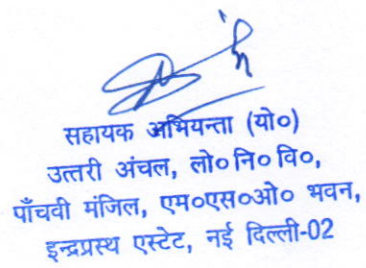 सहायक अभियन्ता (यो०)
उत्तरी अंचल, लो०नि०वि०,
पाँचवी मंजिल, एम०एस०ओ० भवन,
इन्द्रप्रस्थ एस्टेट, नई दिल्ली-02